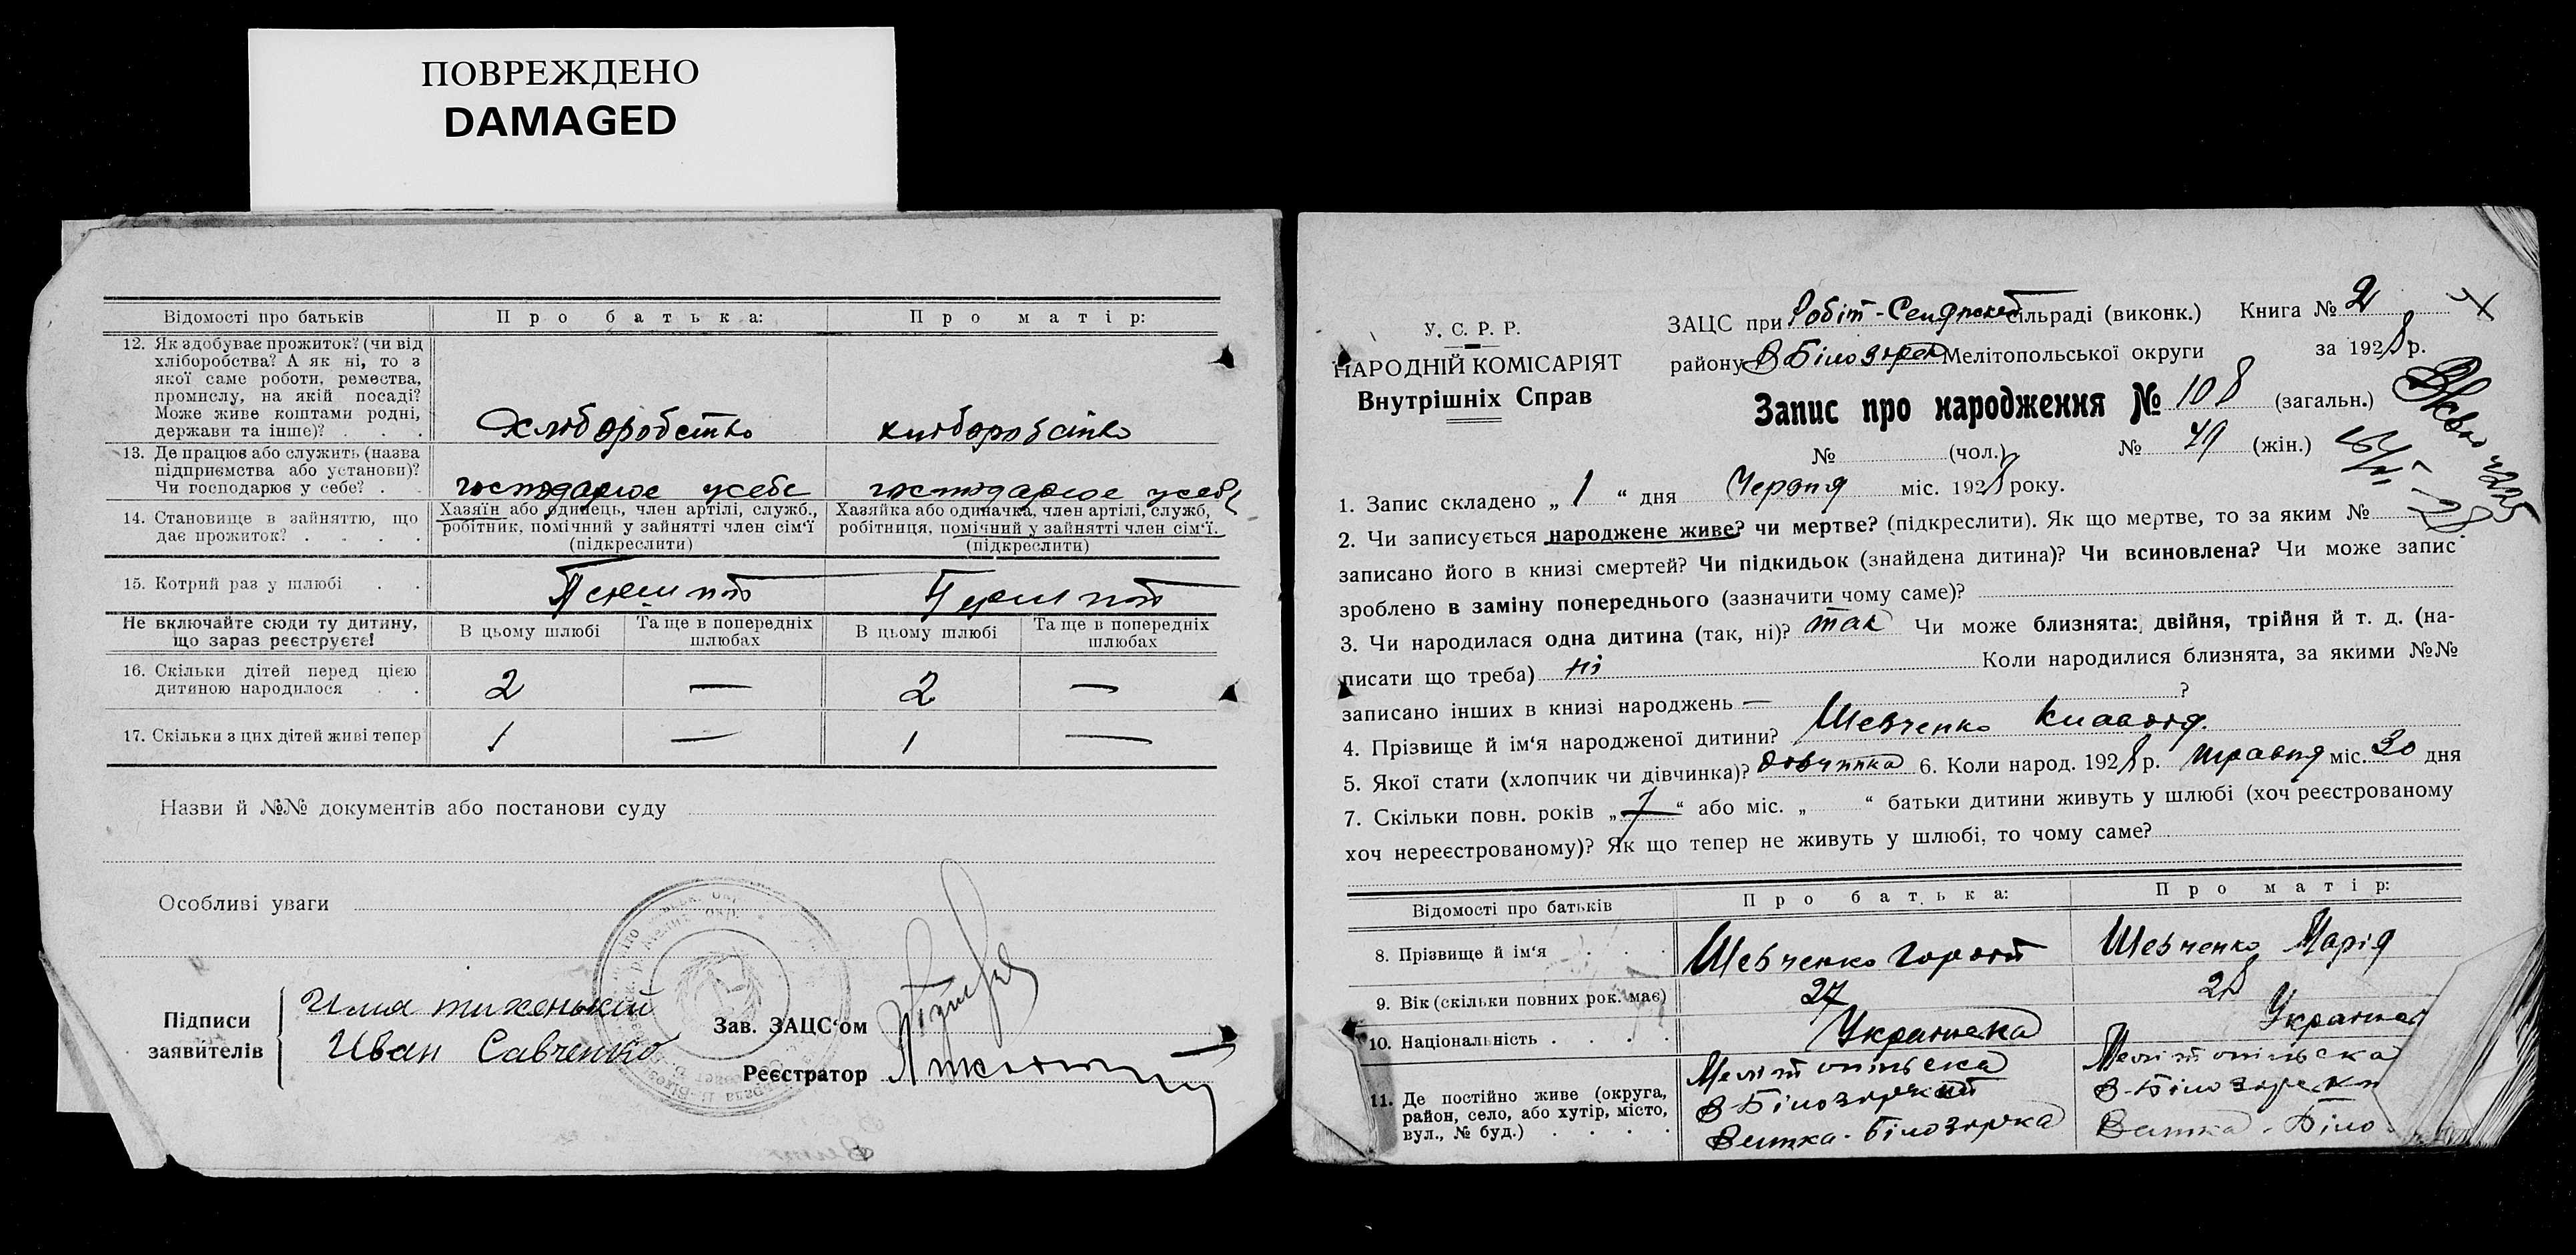 ПОВРЕЖДЕНО
DAMAGED
Відомості про батьків
Про батька:
Про матір:
12. Як здобуває прожиток? (чи від
хліборобства? А як ні, то з
якої саме роботи, ремества,
промислу, на якій посаді?
Може живе коштами родні,
держави та інше)? . . .
хліборобство
хліборобство
13. Де працює або служить (назва
підприємства або установи)?
Чи господарює у себе? . .
господарює усебе
господарює усебе
14. Становище в зайняттю, що
дає прожиток? . . . .
Хазяїн або одинець, член артілі, служб.,
робітник, помічний у зайнятті член сім'ї
(підкреслити)
Хазяйка або одиначка, член артілі, служб,
робітниця, помічний у зайнятті член сім'ї.
(підкреслити)
15. Котрий раз у шлюбі . .
Не включайте сюди ту дитину,
що зараз реєструєте!
В цьому шлюбі
Та ще в попередніх
шлюбах
В цьому шлюбі
Та ще в попередніх
шлюбах
16. Скільки дітей перед цією
дитиною народилося . .
2 — 2 —
17. Скільки з цих дітей живі тепер
1 — 1 —
Назви й №№ документів або постанови суду
Особливі уваги
Підписи
заявителів
Иван Савченко
Зав. ЗАЦС'ом
Реєстратор
У. С. Р. Р.
НАРОДНІЙ КОМІСАРІЯТ
Внутрішніх Справ
ЗАЦС при сільраді (виконк.) Книга № 2
району В Білозірск Мелітопольської округи за 1928 р.
Запис про народження № 108 (загальн.)
№ (чол.) № 49 (жін.)
1. Запис складено „ 1 “ дня Червня міс. 1928 року.
2. Чи записується народжене живе? чи мертве? (підкреслити). Як що мертве, то за яким №
записано його в книзі смертей? Чи підкидьок (знайдена дитина)? Чи всиновлена? Чи може запис
зроблено в заміну попереднього (зазначити чому саме)?
3. Чи народилася одна дитина (так, ні)? так Чи може близнята: двійня, трійня й т. д. (на-
писати що треба) ні Коли народилися близнята, за якими №№
записано інших в книзі народжень — ?
4. Прізвище й ім'я народженої дитини? Шевченко Клавдія.
5. Якої стати (хлопчик чи дівчинка)? дівчинка 6. Коли народ. 1928 р. травня міс. 30 дня
7. Скільки повн. років „ 7 “ або міс. „ “ батьки дитини живуть у шлюбі (хоч реєстрованому
хоч нереєстрованому)? Як що тепер не живуть у шлюбі, то чому саме?
Відомості про батьків
Про батька:
Про матір:
8. Прізвище й ім'я . . .
Шевченко
Шевченко Марія
9. Вік (скільки повних рок. має)
27
28
10. Національність . . . .
Українська
11. Де постійно живе (округа,
район, село, або хутір, місто,
вул., № буд.) . . . .
Мелітопільська
В-Білозірский
Велика-Білозірка
Мелітопільска
В-Білозірски
Велика-Біло